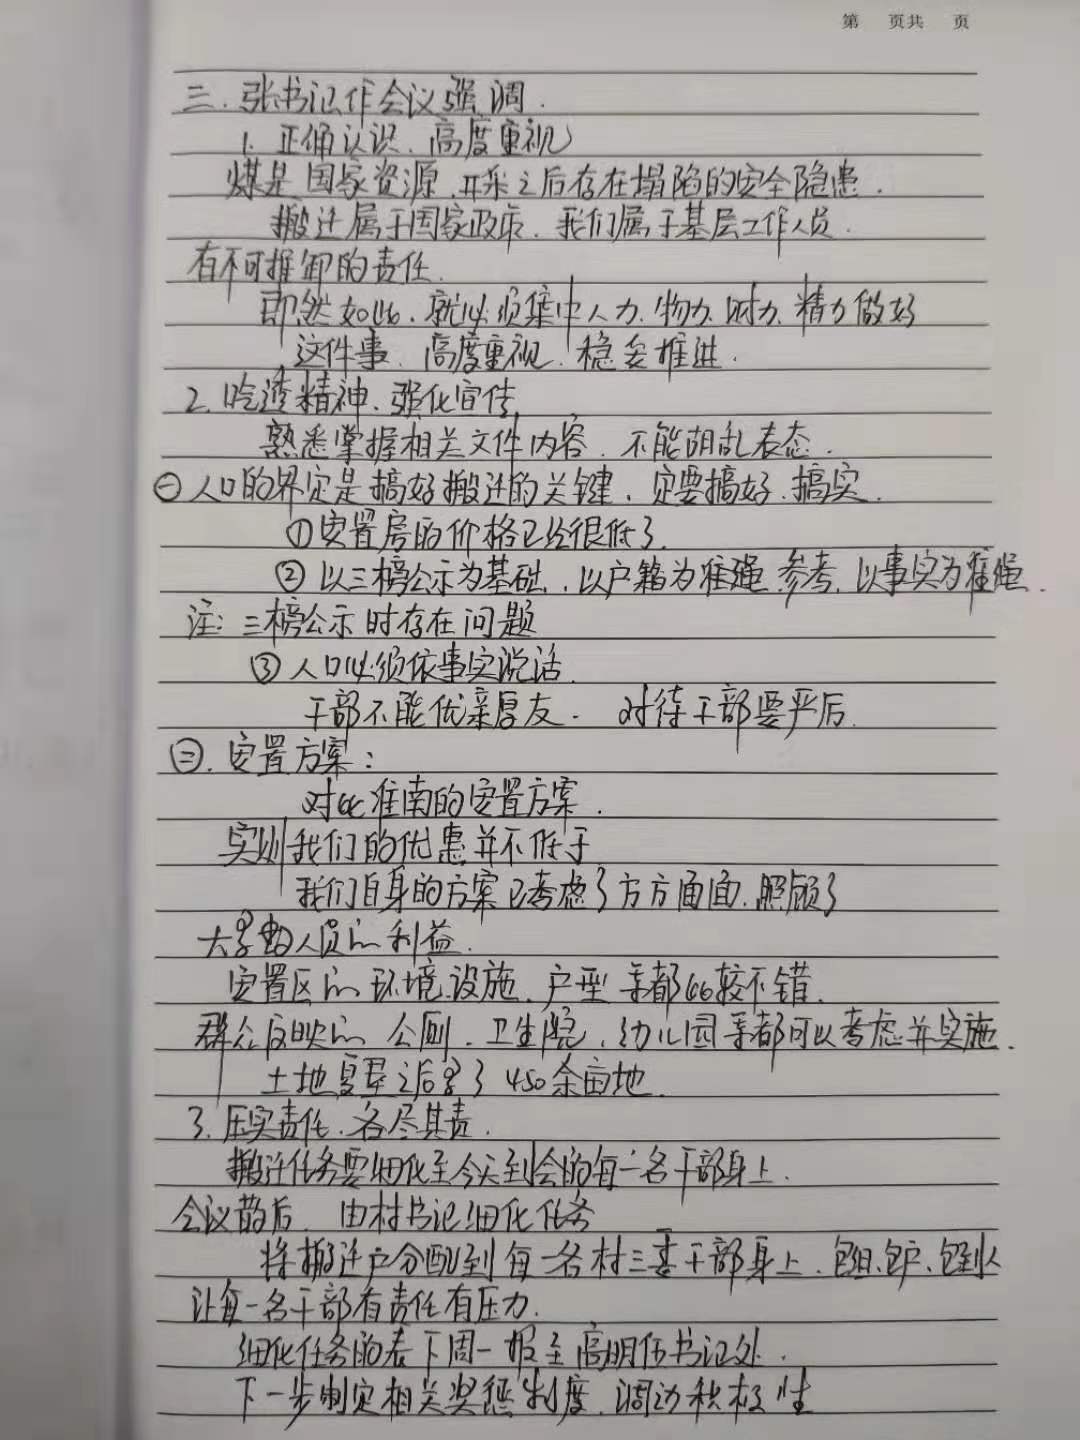 第 页共 页
三. 张书记作会议强调.
1. 正确认识、高度重视
煤是国家资源,开采之后存在塌陷的安全隐患.
搬迁属于国家政策、我们属于基层工作人员.
有不可推卸的责任.
即然如此、就必须集中人力、物力、财力、精力做好
这件事、高度重视、稳妥推进.
2. 吃透精神、强化宣传
熟悉掌握相关文件内容、不能胡乱表态.
㊀人口的界定是搞好搬迁的关键、一定要搞好、搞实.
①安置房的价格已经很低了.
②以三榜公示为基础、以户籍为准绳 参考、以事实为准绳.
注: 三榜公示时存在问题
③人口必须依事实说话.
干部不能优亲厚友. 对待干部要严厉.
㊁. 安置方案:
对比淮南的安置方案.
实则我们的优惠并不低于
我们自身的方案已考虑了方方面面、照顾了
人员的利益.
安置区的环境、设施、户型等都比较不错.
群众反映的 公厕、卫生院、幼儿园等都可以考虑并实施.
土地复垦之后 了450余亩地.
3. 压实责任、各尽其责.
搬迁任务要细化至今天到会的每一名干部身上.
会议散后、由村书记细化任务
将搬迁户分配到每一名村三委干部身上、包组、包户、包到人
让每一名干部有责任有压力.
细化任务的表下周一报至高明伍书记处.
下一步制定相关奖惩制度、调动积极性